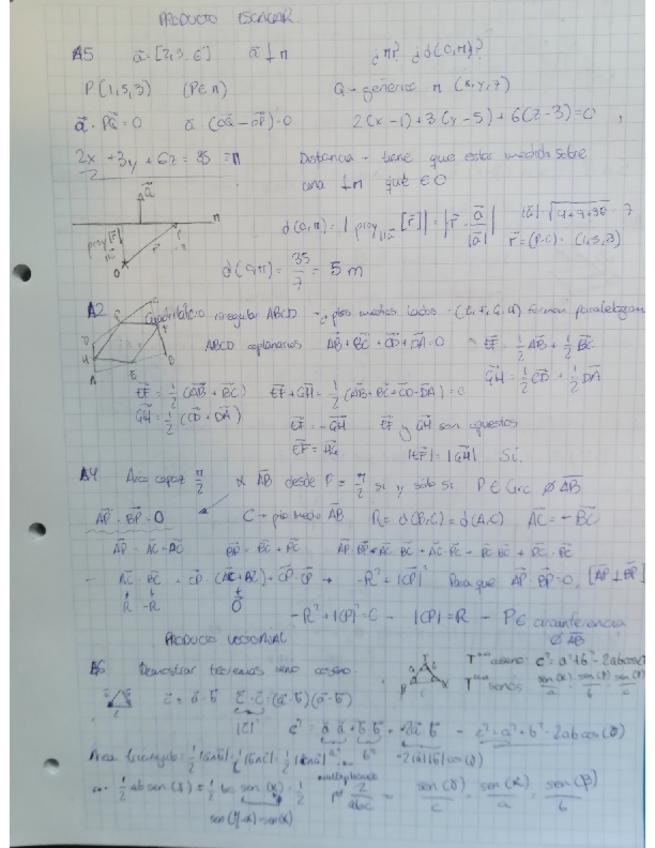 PRODUCTO ESCALAR
A5 a⃗ = [2,3,6] a⃗ ⊥ π ¿π? ¿d(O,π)?
P(1,5,3) (P∈π) Q → genérico π (x,y,z)
a⃗ · PQ⃗ = 0 a⃗ · (OQ⃗ - OP⃗) = 0 2(x-1)+3(y-5)+6(z-3)=0
2x + 3y + 6z = 35 = π Distancia → tiene que estar medida sobre
una ⊥π que ∈ O
a⃗ π
d(O,π) = | proy [r⃗] | = | r⃗ · a⃗/|a⃗| | |a⃗| = √4+9+36 = 7
r⃗ = (P-O) = (1,5,3)
d(O,π) = 35/7 = 5 m
A2 Cuadrilátero irregular ABCD → ¿ptos medios lados → (E,F,G,H) forman paralelogram
ABCD coplanarios AB⃗+BC⃗+CD⃗+DA⃗=0 EF⃗ = 1/2 AB⃗ + 1/2 BC⃗
GH⃗ = 1/2 CD⃗ + 1/2 DA⃗
EF⃗ = 1/2 (AB⃗ + BC⃗) EF⃗+GH⃗ = 1/2 (AB⃗+BC⃗+CD⃗+DA⃗) = 0
GH⃗ = 1/2 (CD⃗ + DA⃗) EF⃗ = -GH⃗ EF⃗ y GH⃗ son opuestos
EF⃗ = HG⃗ |EF⃗| = |GH⃗| Sí.
A4 Arco capaz π/2 AB⃗ desde P = π/2 si y solo si P ∈ Circ Ø AB⃗
AP⃗ · BP⃗ = 0 C → pto medio AB⃗ R = d(B,C) = d(A,C) AC⃗ = -BC⃗
-R² + |CP⃗|² Para que AP⃗ · BP⃗ = 0, [AP⃗ ⊥ BP⃗]
R -R 0
-R² + |CP|² = 0 → |CP| = R → P ∈ circunferencia
Ø AB⃗
PRODUCTO VECTORIAL
A6 Demostrar teoremas seno coseno.
Tma coseno: c² = a²+b²-2ab cos(γ)
Tma senos: sen(α)/a = sen(β)/b = sen(γ)/c
c⃗ = a⃗ - b⃗ c⃗ · c⃗ = (a⃗-b⃗)(a⃗-b⃗)
|c⃗|² c² = a⃗ · a⃗ + b⃗ · b⃗ - 2a⃗ · b⃗ → c² = a²+b²-2ab cos(γ)
a² b² -2|a||b| cos(γ)
multiplicando
1/2 ab sen(γ) = 1/2 bc sen(α) = 1/2
por 2/abc → sen(γ)/c = sen(α)/a = sen(β)/b
sen(π-α) = sen(α)